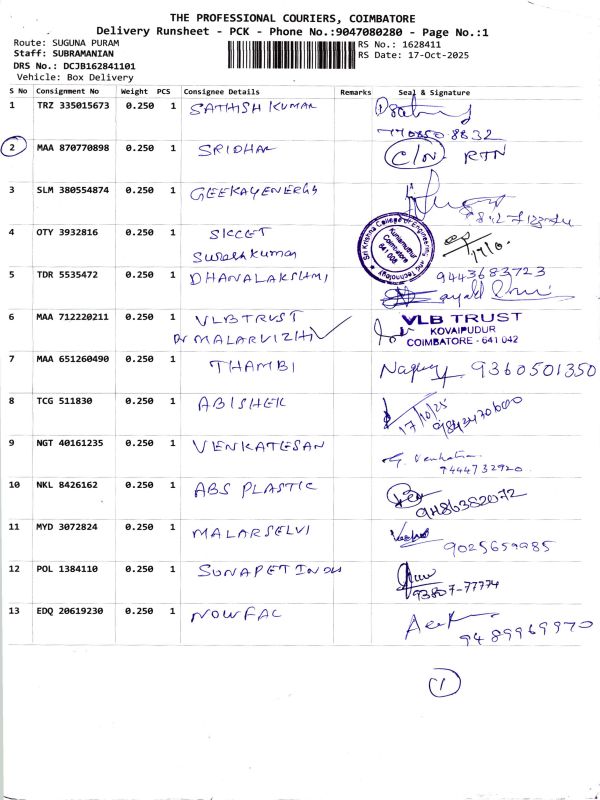 THE PROFESSIONAL COURIERS, COIMBATORE
Delivery Runsheet - PCK - Phone No.:9047080280 - Page No.:1
Route: SUGUNA PURAM
Staff: SUBRAMANIAN
DRS No.: DCJB162841101
Vehicle: Box Delivery
RS No.: 1628411
RS Date: 17-Oct-2025
S No Consignment No Weight PCS Consignee Details Remarks Seal & Signature
1 TRZ 335015673 0.250 1 SATHISH KUMAR
2 MAA 870770898 0.250 1 SRIDHAR C/N RTN
3 SLM 380554874 0.250 1 GEEKAYENERGY
4 OTY 3932816 0.250 1 SKCET
Sri Krishna College of Engineering and Technology
Kuniamuthur Coimbatore 641 008
5 TDR 5535472 0.250 1 DHANALAKSHMI 9443683723
6 MAA 712220211 0.250 1 VLB TRUST
Dr MALARVIZHI
VLB TRUST
KOVAIPUDUR
COIMBATORE - 641 042
7 MAA 651260490 0.250 1 THAMBI 9360501350
8 TCG 511830 0.250 1 ABISHEK 17/10/25
9 NGT 40161235 0.250 1 VENKATESAN 9444732920
10 NKL 8426162 0.250 1 ABS PLASTIC 9486382072
11 MYD 3072824 0.250 1 MALARSELVI 9025659985
12 POL 1384110 0.250 1 93807-77774
13 EDQ 20619230 0.250 1 NOWFAL 9489969970
1